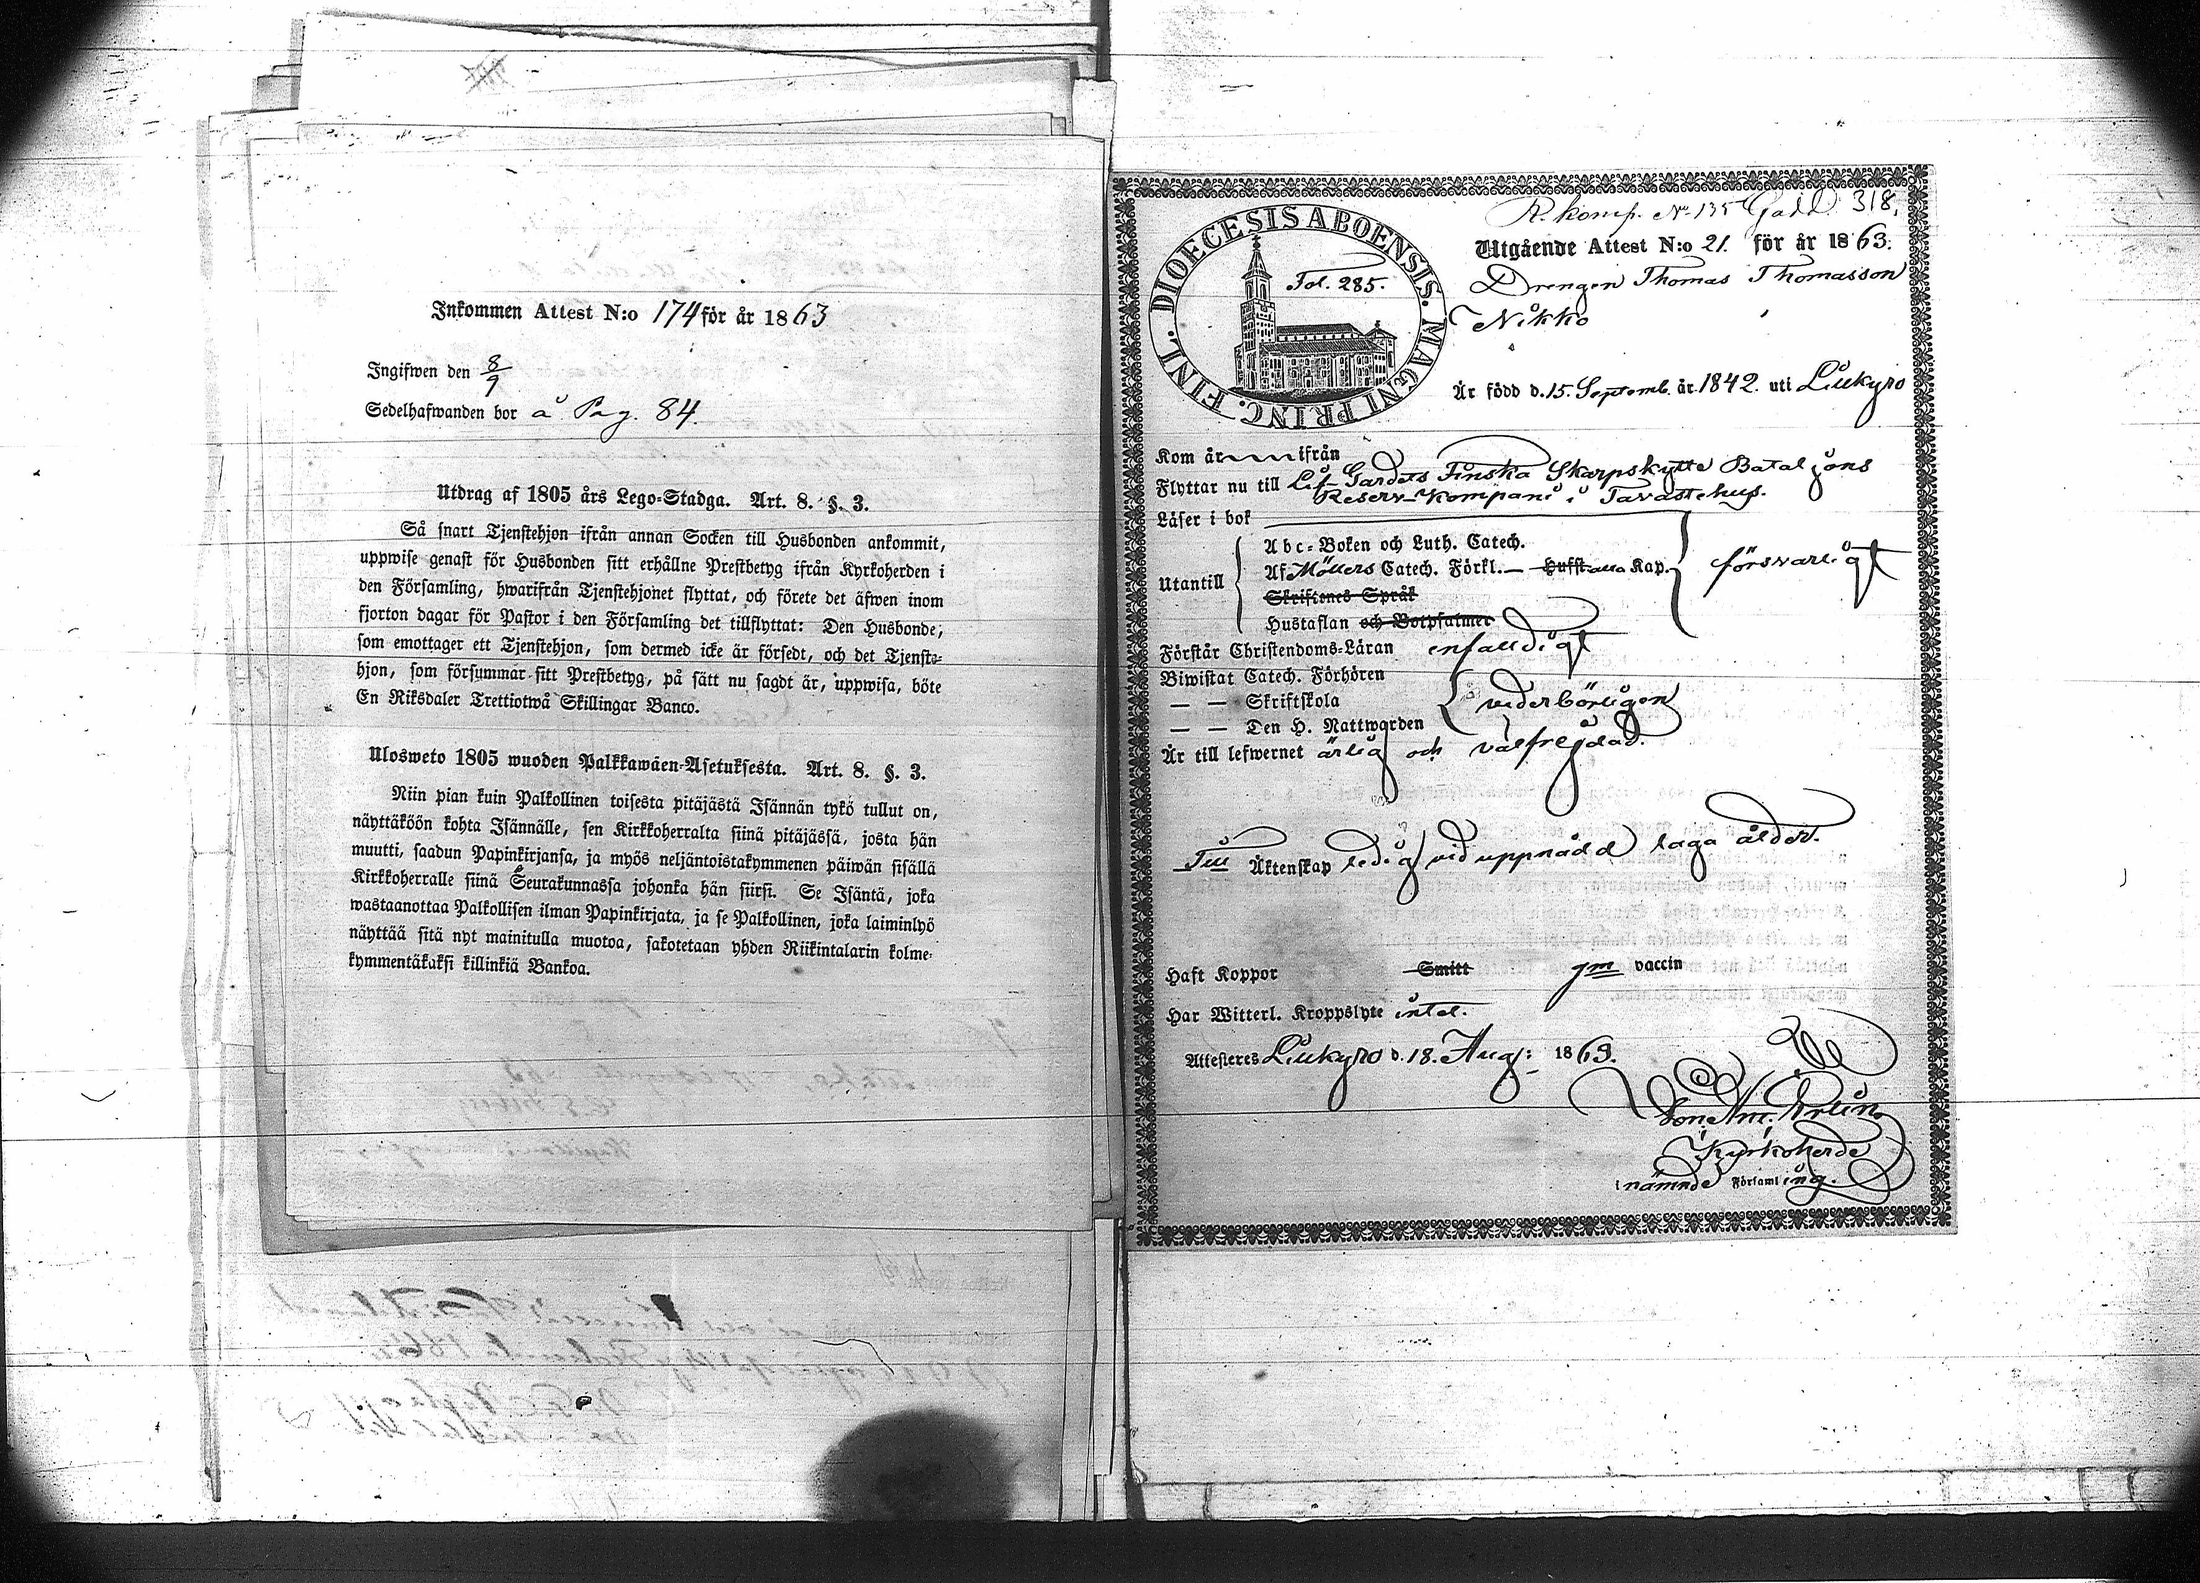 Inkommen Attest N:o 174 för år 1863
Ingifwen den 8/9
Sedelhafwanden bor å Pag. 84.
Utdrag af 1805 års Lego-Stadga. Art. 8. §. 3.
Så snart Tjenstehjon ifrån annan Socken till Husbonden ankommit,
uppwise genast för Husbonden sitt erhållne Prestbetyg ifrån Kyrkoherden i
den Församling, hwarifrån Tjenstehjonet flyttat, och förete det äfwen inom
fjorton dagar för Pastor i den Församling det tillflyttat: Den Husbonde,
som emottager ett Tjenstehjon, som dermed icke är försedt, och det Tjenste-
hjon, som försummar sitt Prestbetyg, på sätt nu sagdt är, uppwisa, böte
En Riksdaler Trettiotwå Skillingar Banco.
Ulosweto 1805 wuoden Palkkawäen-Asetuksesta. Art. 8. §. 3.
Niin pian kuin Palkollinen toisesta pitäjästä Isännän tykö tullut on,
näyttäköön kohta Isännälle, sen Kirkkoherralta siinä pitäjässä, josta hän
muutti, saadun Papinkirjansa, ja myös neljäntoistakymmenen päiwän sisällä
Kirkkoherralle siinä Seurakunnassa johonka hän siirsi. Se Isäntä, joka
wastaanottaa Palkollisen ilman Papinkirjata, ja se Palkollinen, joka laiminlyö
näyttää sitä nyt mainitulla muotoa, sakotetaan yhden Riikintalarin kolme-
kymmentäkaksi killinkiä Bankoa.
R. komp. No 135 Gadd 318,
DIOECESIS ABOENSIS. MAGNI PRINC. FINL.
Fol. 285.
Utgående Attest N:o 21. för år 1863.
Drengen Thomas Thomasson
Nikko
Är född d. 15. Septemb. år 1842. uti Lillkyro
Kom år ifrån
Flyttar nu till Lif-Gardets Finska Skarpskytte Bataljons
Reserv-Kompani i Tavastehus.
Läser i bok
Abc-Boken och Luth. Catech.
Utantill Af Möllers Catech. Förkl. — Hufst alla Kap. försvarligt
Skriftenes Språk
Hustaflan och Botpsalmer
Förstår Christendoms-Läran enfalldigt
Biwistat Catech. Förhören
— — Skriftskola vederbörligen
— — Den H. Nattwarden
Är till lefwernet ärlig och välfrejdad.
Till Äktenskap ledig vid uppnådd laga ålder.
Haft Koppor Smitt gm vaccin
Har Witterl. Kroppslyte intet.
Attesteres Lillkyro d. 18. Aug: 1863.
Kyrkoherde
i nämnde Församling.